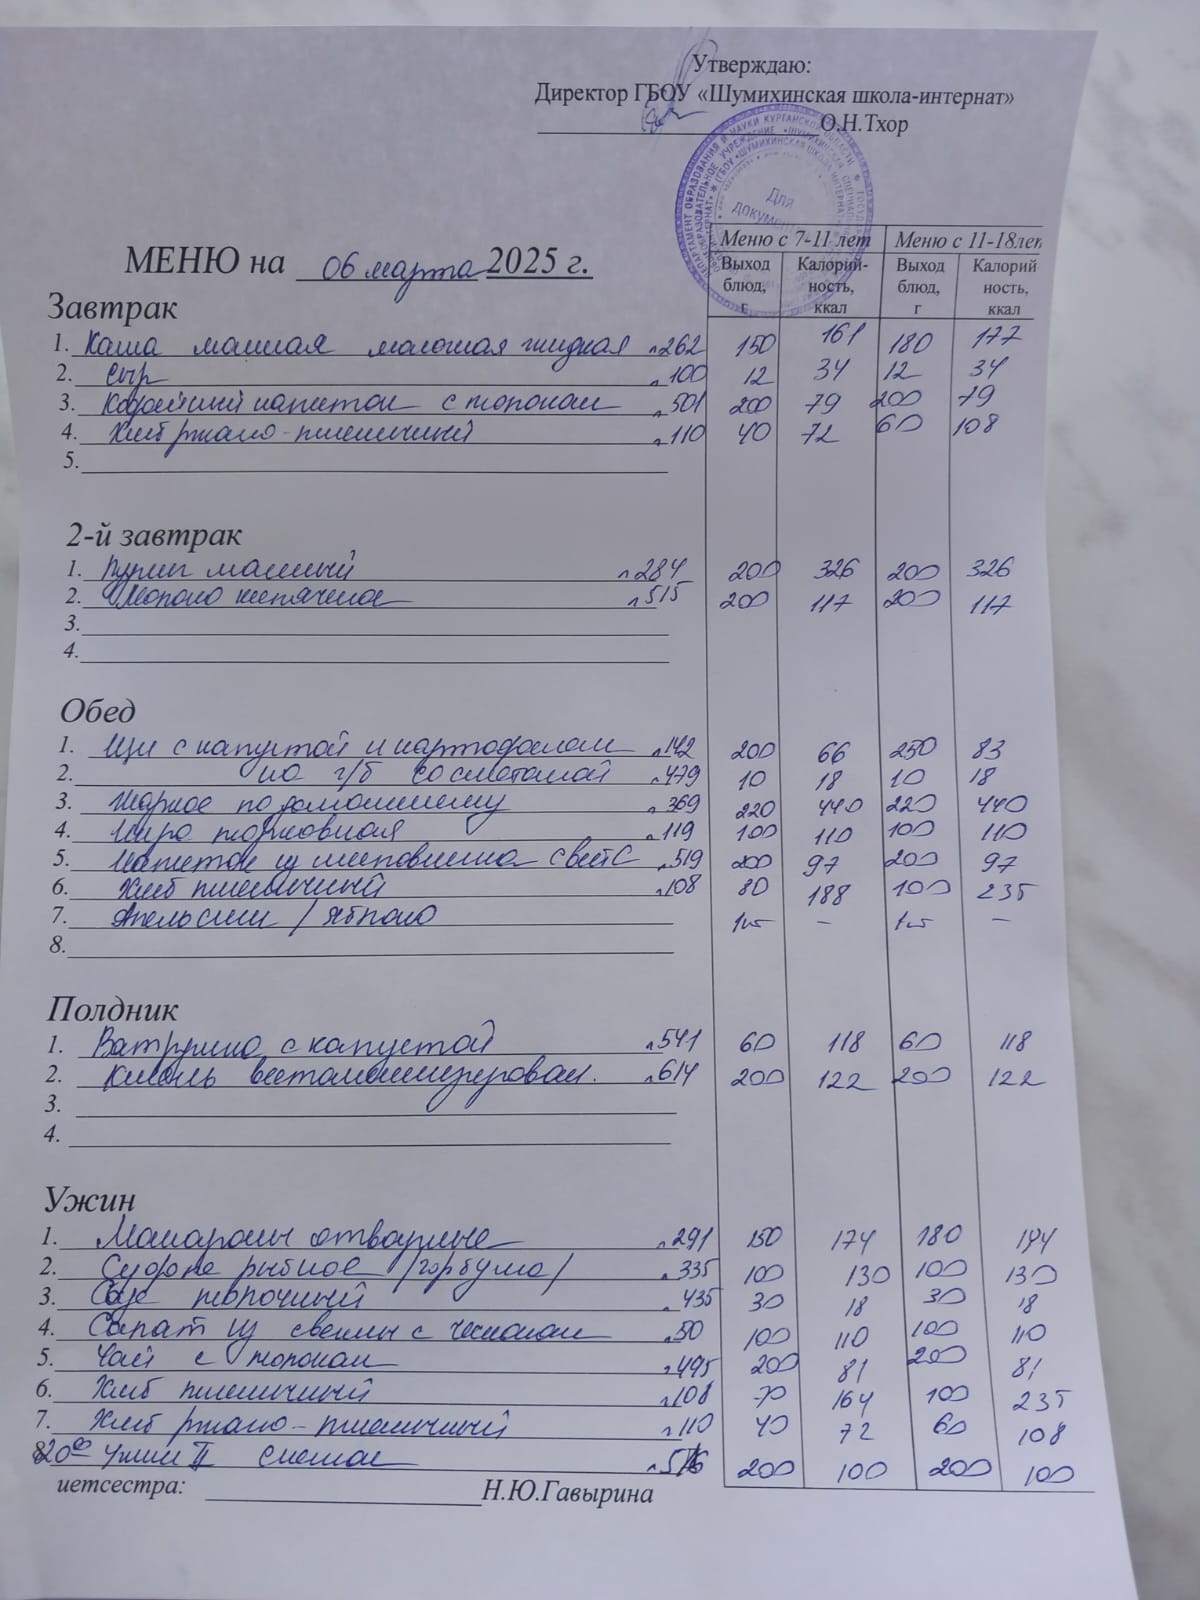 Утверждаю:
Директор ГБОУ «Шумихинская школа-интернат»
О.Н.Тхор
Для
документов
МЕНЮ на 06 марта 2025 г.
Меню с 7-11 лет Меню с 11-18лет
Выход блюд, г Калорий-ность, ккал Выход блюд, г Калорий ность, ккал
Завтрак
1. Каша манная молочная жидкая л262 150 161 180 177
2. Сыр л100 12 34 12 34
3. Кофейный напиток с молоком л501 200 79 200 79
4. Хлеб ржано-пшеничный л110 40 72 60 108
5.
2-й завтрак
1. манный л284 200 326 200 326
2. Молоко кипяченое л515 200 117 200 117
3.
4.
Обед
1. Щи с капустой и картофелем л142 200 66 250 83
2. на г/б со сметаной л479 10 18 10 18
3. Жаркое по домашнему л369 220 440 220 440
4. Икра морковная л119 100 110 100 110
5. Напиток из шиповника с вит С л519 200 97 200 97
6. Хлеб пшеничный л108 80 188 100 235
7. Апельсин / яблоко 1шт – 1шт –
8.
Полдник
1. Ватрушка с капустой л541 60 118 60 118
2. Кисель витаминизирован. л614 200 122 200 122
3.
4.
Ужин
1. Макароны отварные л291 150 174 180 194
2. Суфле рыбное /горбуша/ л335 100 130 100 130
3. Соус молочный л435 30 18 30 18
4. Салат из свеклы с чесноком л50 100 110 100 110
5. Чай с молоком л495 200 81 200 81
6. Хлеб пшеничный л108 70 164 100 235
7. Хлеб ржано-пшеничный л110 40 72 60 108
8. 20⁰⁰ Ужин II л516 200 100 200 100
иетсестра: Н.Ю.Гавырина